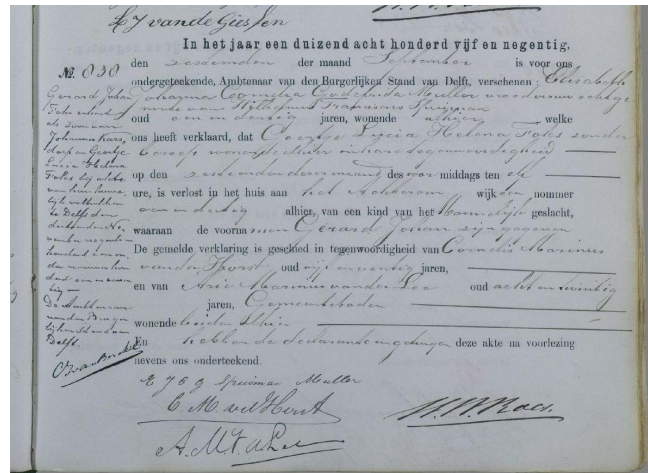 L J van de Giessen
In het jaar een duizend acht honderd vijf en negentig,
No. 830
den zestienden der maand September is voor ons
ondergeteekende, Ambtenaar van den Burgerlijken Stand van Delft, verschenen: Elisabeth
Johanna Cornelia Godefrida Muller vroedvrouw echtge
noote van Wilhelmus Franciscus Spuijman
oud een en dertig jaren, wonende alhier welke
ons heeft verklaard, dat Geertje Lucia Helena Fokes zonder
beroep wonende alhier in hare tegenwoordigheid
op den zestienden dezer maand des voor middags ten elf
ure, is verlost in het huis aan het Achterom wijk een nommer
alhier, van een kind van het Mannelijk geslacht,
waaraan de voornamen Gerard Johan zijn gegeven
De gemelde verklaring is geschied in tegenwoordigheid van Cornelis Marinus
van der Horst oud vijf en twintig jaren,
en van Arie Marinus van der Lee oud acht en twintig
jaren, Gemeentebode
wonende beiden alhier
En hebben de declarante en getuigen deze akte na voorlezing
nevens ons onderteekend.
Gerard Johan
Fokes erkend
als zoon van
Johannes
en Geertje
Lucia Helena
Fokes bij akte
van hun huwe
lijk voltrokken
te Delft den
De Ambtenaar
van den Burger
lijken Stand van
Delft.
E J C G Spuijman Muller
C. M. vd Horst
A. M. v. d. Lee